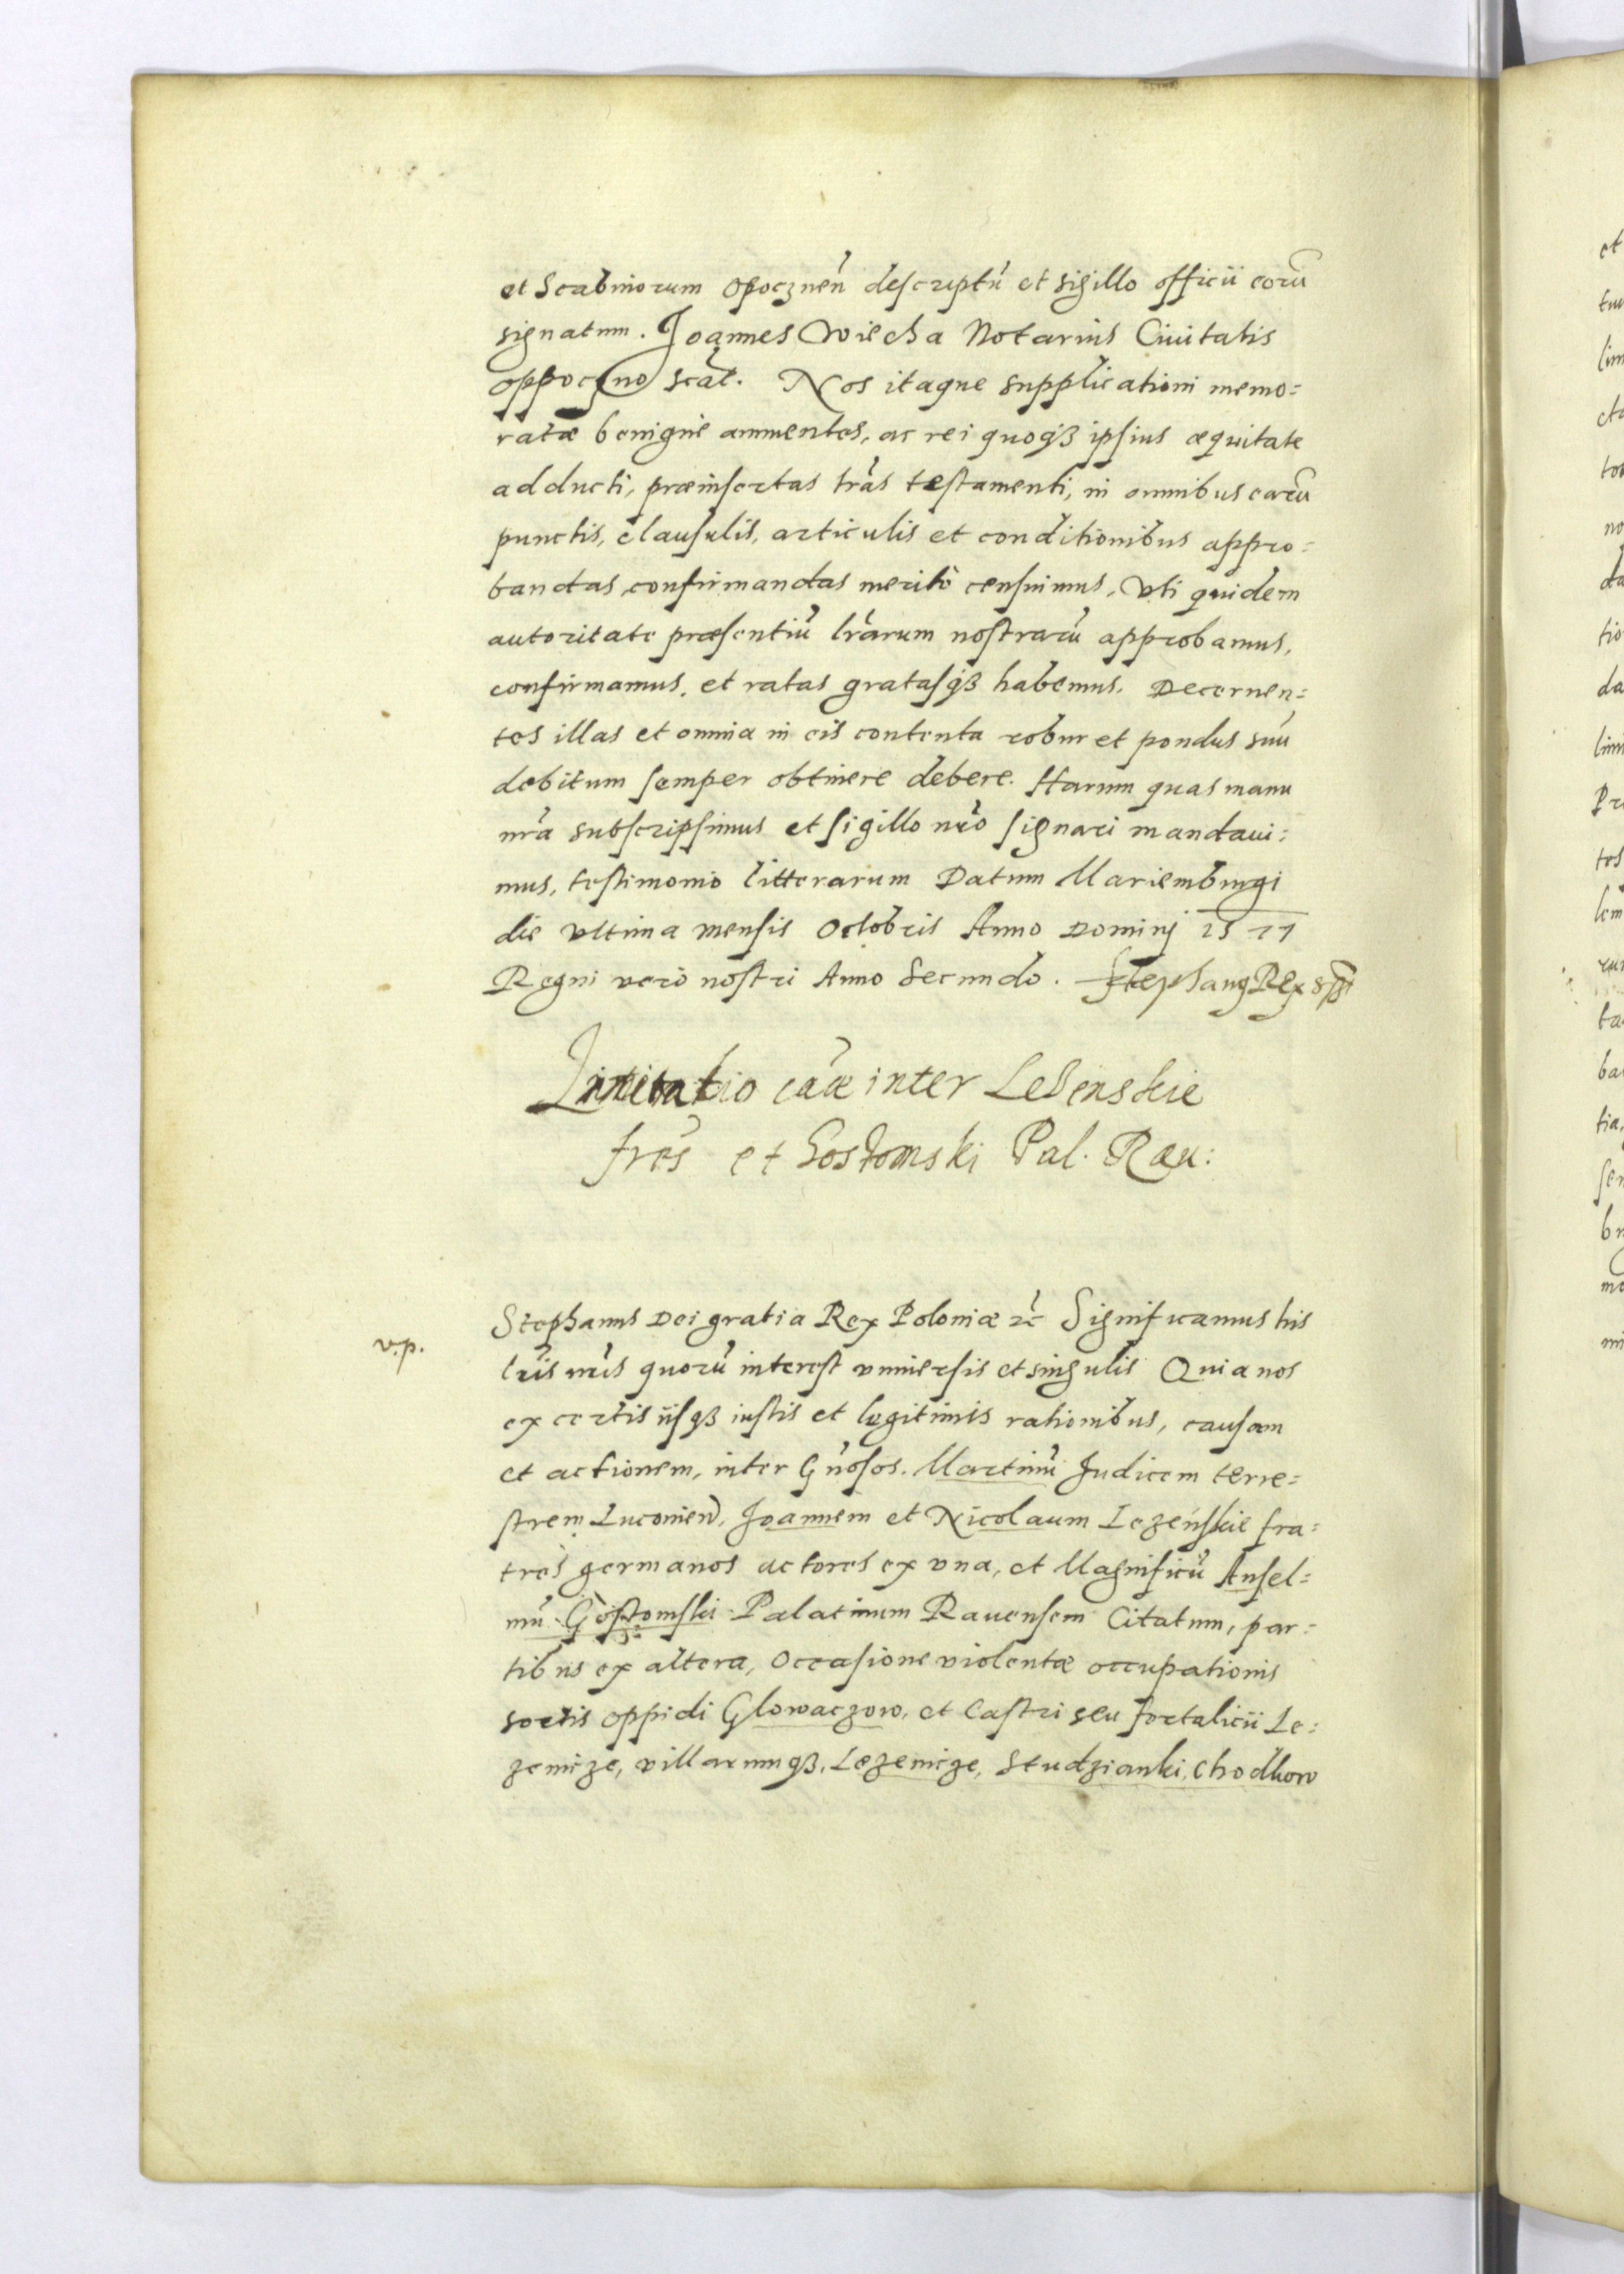 et Scabinorum Opocznen̄ descriptū et sigillo officii eorū
signatum. Joannes Wiecha Notarius Ciuitatis
Oppoczno scāt. Nos itaque supplicationi memo=
ratæ benigne annuentes, ac rei quoqȝ ipsius æquitate
adducti, præinsertas lrās testamenti, in omnibus earū
punctis, clausulis, articulis et conditionibus appro=
bandas, confirmandas meritò censuimus, Vti quidem
autoritate præsentiū lrārum nostrarū approbamus,
confirmamus, et ratas gratasqȝ habemus. Decernen=
tes illas et omnia in eis contenta robur et pondus suū
debitum semper obtinere debere. Harum quas manu
nrā subscripsimus et sigillo nrō signari mandaui=
mus, testimonio litterarum Datum Mariemburgi
die vltima mensis Octobris Anno Dominj 1577
Regni verò nostri Anno Secundo. Stephanus Rex sst
cāæ inter Lesenskie
frēs et Gostomski Pal. Rau:
v.p.
Stephanus Dei gratia Rex Poloniæ etc̄ Significamus his
lrīs nrīs quorū interest vniuersis et singulis Quia nos
ex certis iisqȝ iustis et legitimis rationibus, causam
et actionem, inter Gn̄osos. Martinū Judicem terre=
strem Lucorien̄, Joannem et Nicolaum Lezeńskie fra=
tres germanos actores ex vna, et Magnificū Ansel=
mū Gostomski Palatinum Rauensem Citatum, par=
tibus ex altera, Occasione violentæ occupationis
sortis oppidi Glowaczow, et Castri seu fortalicii Le=
zenicze, villarumqȝ, Lezenicze, Studzianki, Chodkow